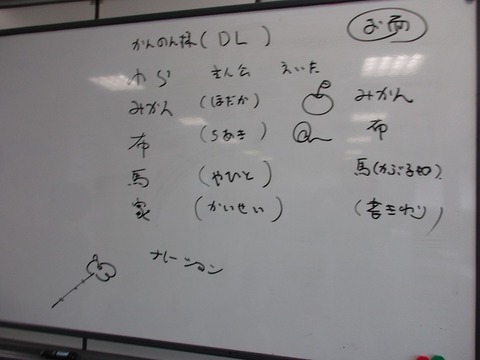 かんのん様(DL)
わら きん公 えいた
みかん (ほだか)
布 (ちあき)
馬 (やひと)
家 (かいせい)
ナレーション
お面
みかん
布
馬(かぶるやつ)
(書きわり)